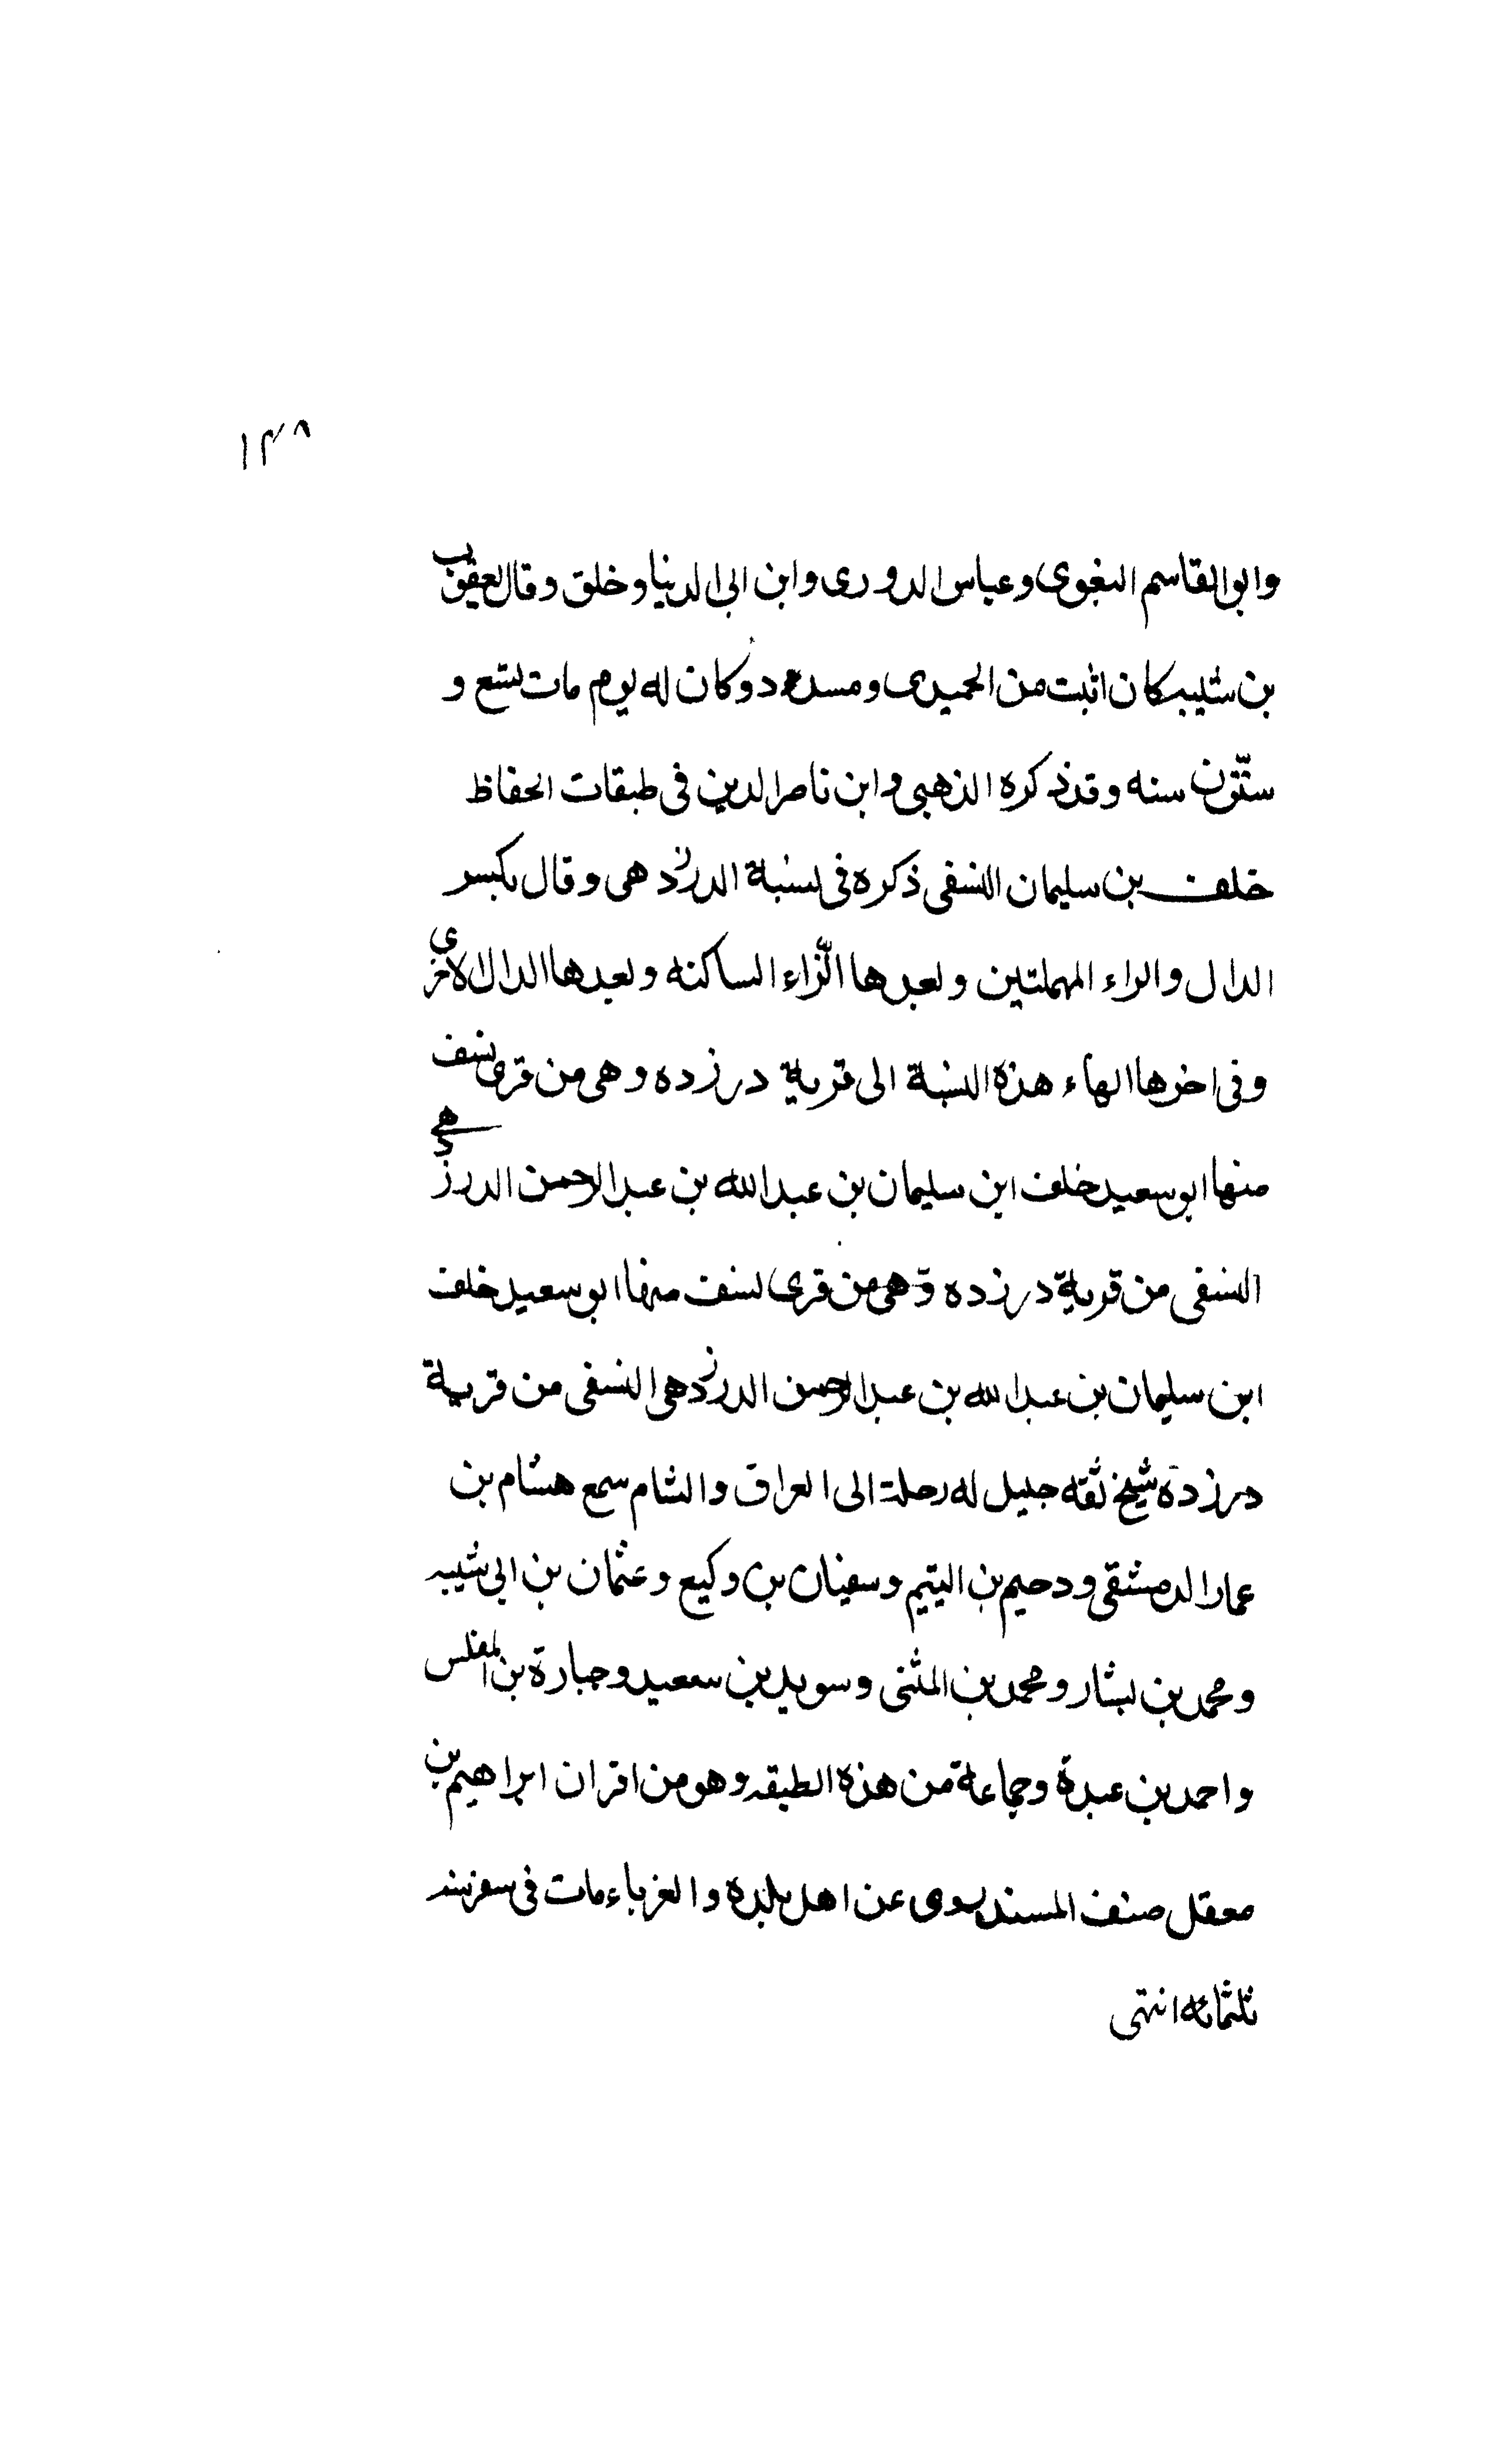 ۱۴۸
وابوالقاسم البغوى وعباس الدورى وابن ابى الدنيا وخلق وقال يعقوب
بن شيبه كان اثبت من الحميدى ومسدد وكان له يوم مات تسع و
ستّون سنه وقد ذكره الذهبى وابن ناصر الدين فى طبقات الحفاظ
خلف بن سليمان النسفى ذكره فى نسبة الدرزدهى وقال بكسر
الدال والراء المهملتين وبعدها الزاء الساكنه وبعدها الدال الاخرى
وفى اخرها الهاء هذه النسبة الى قرية درزده وهى من قرى نسف
منها ابو سعيد خلف ابن سليمان بن عبدالله بن عبدالرحمن الدرزدهى
النسفى من قرية درزده وهى من قرى نسف منها ابو سعيد خلف
ابن سليمان بن عبدالله بن عبدالرحمن الدرزدهى النسفى من قرية
درزده شيخ ثقه جليل له رحلة الى العراق والشام سمع هشام بن
عمار الدمشقى ودحيم بن اليتيم وسفيان بن وكيع وعثمان بن ابى شيبه
ومحمد بن بشار ومحمد بن المثنى وسويد بن سعيد وجبارة بن المغلس
واحمد بن عبدة وجماعة من هذه الطبقه وهو من اقران ابراهيم بن
معقل صنف المسند يروى عن اهل بلده والغرباء مات فى
ثلثمائه انتهى